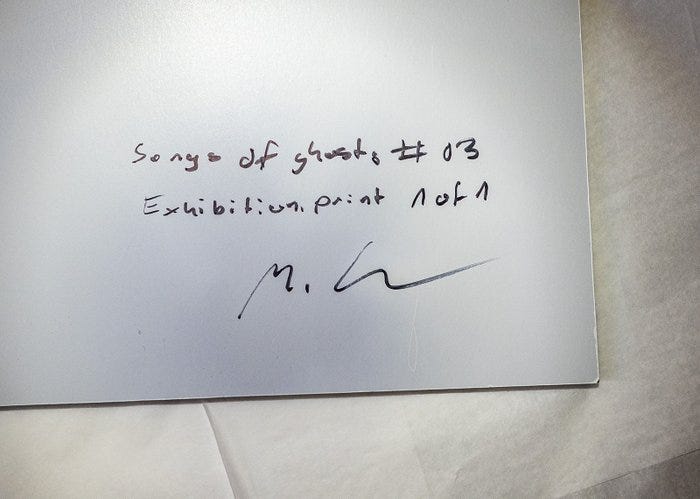 Songs of ghosts # 03
Exhibition print 1 of 1
M.